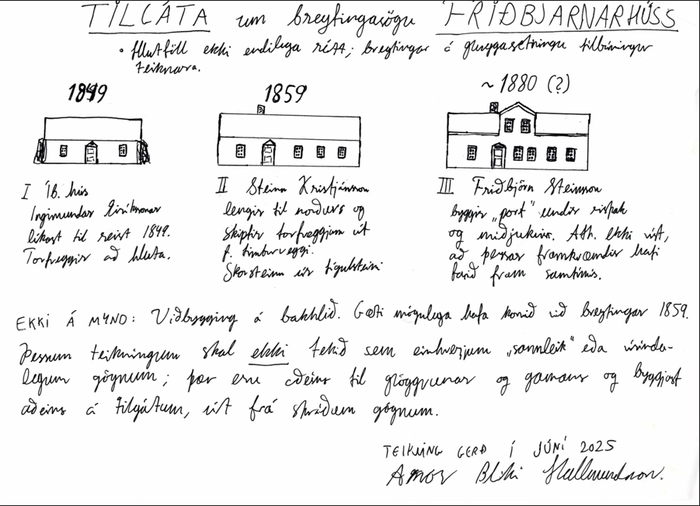 TILGÁTA um breytingasögu FRIÐBJARNARHÚSS
• Hlutföll ekki endilega rétt; breytingar á gluggasetningu tilbúningur
teiknara.
1849
1859
~ 1880 (?)
I Íb. hús
Ingimundar Eiríkssonar
líkast til reist 1849.
Torfveggir að hluta.
II Steinn Kristjánsson
lengir til norðurs og
skiptir torfveggjum út
f. timburveggi.
Skorsteinn úr tígulsteini
III Friðbjörn Steinsson
byggir „port“ undir rishæð
og miðjukvist. Ath. ekki víst,
að þessar framkvæmdir hafi
farið fram samtímis.
EKKI Á MYND: Viðbygging á bakhlið. Gæti mögulega hafa komið við breytingar 1859.
Þessum teikningum skal ekki tekið sem einhverjum „sannleik“ eða vísinda-
legum gögnum; þær eru aðeins til glöggvunar og gamans og byggjast
aðeins á tilgátum, út frá skráðum gögnum.
TEIKNING GERÐ Í JÚNÍ 2025
Arnór Bliki Hallmundsson.